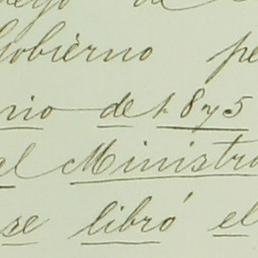 de
Gobierno
nio de 1875
al Ministro
se libró el